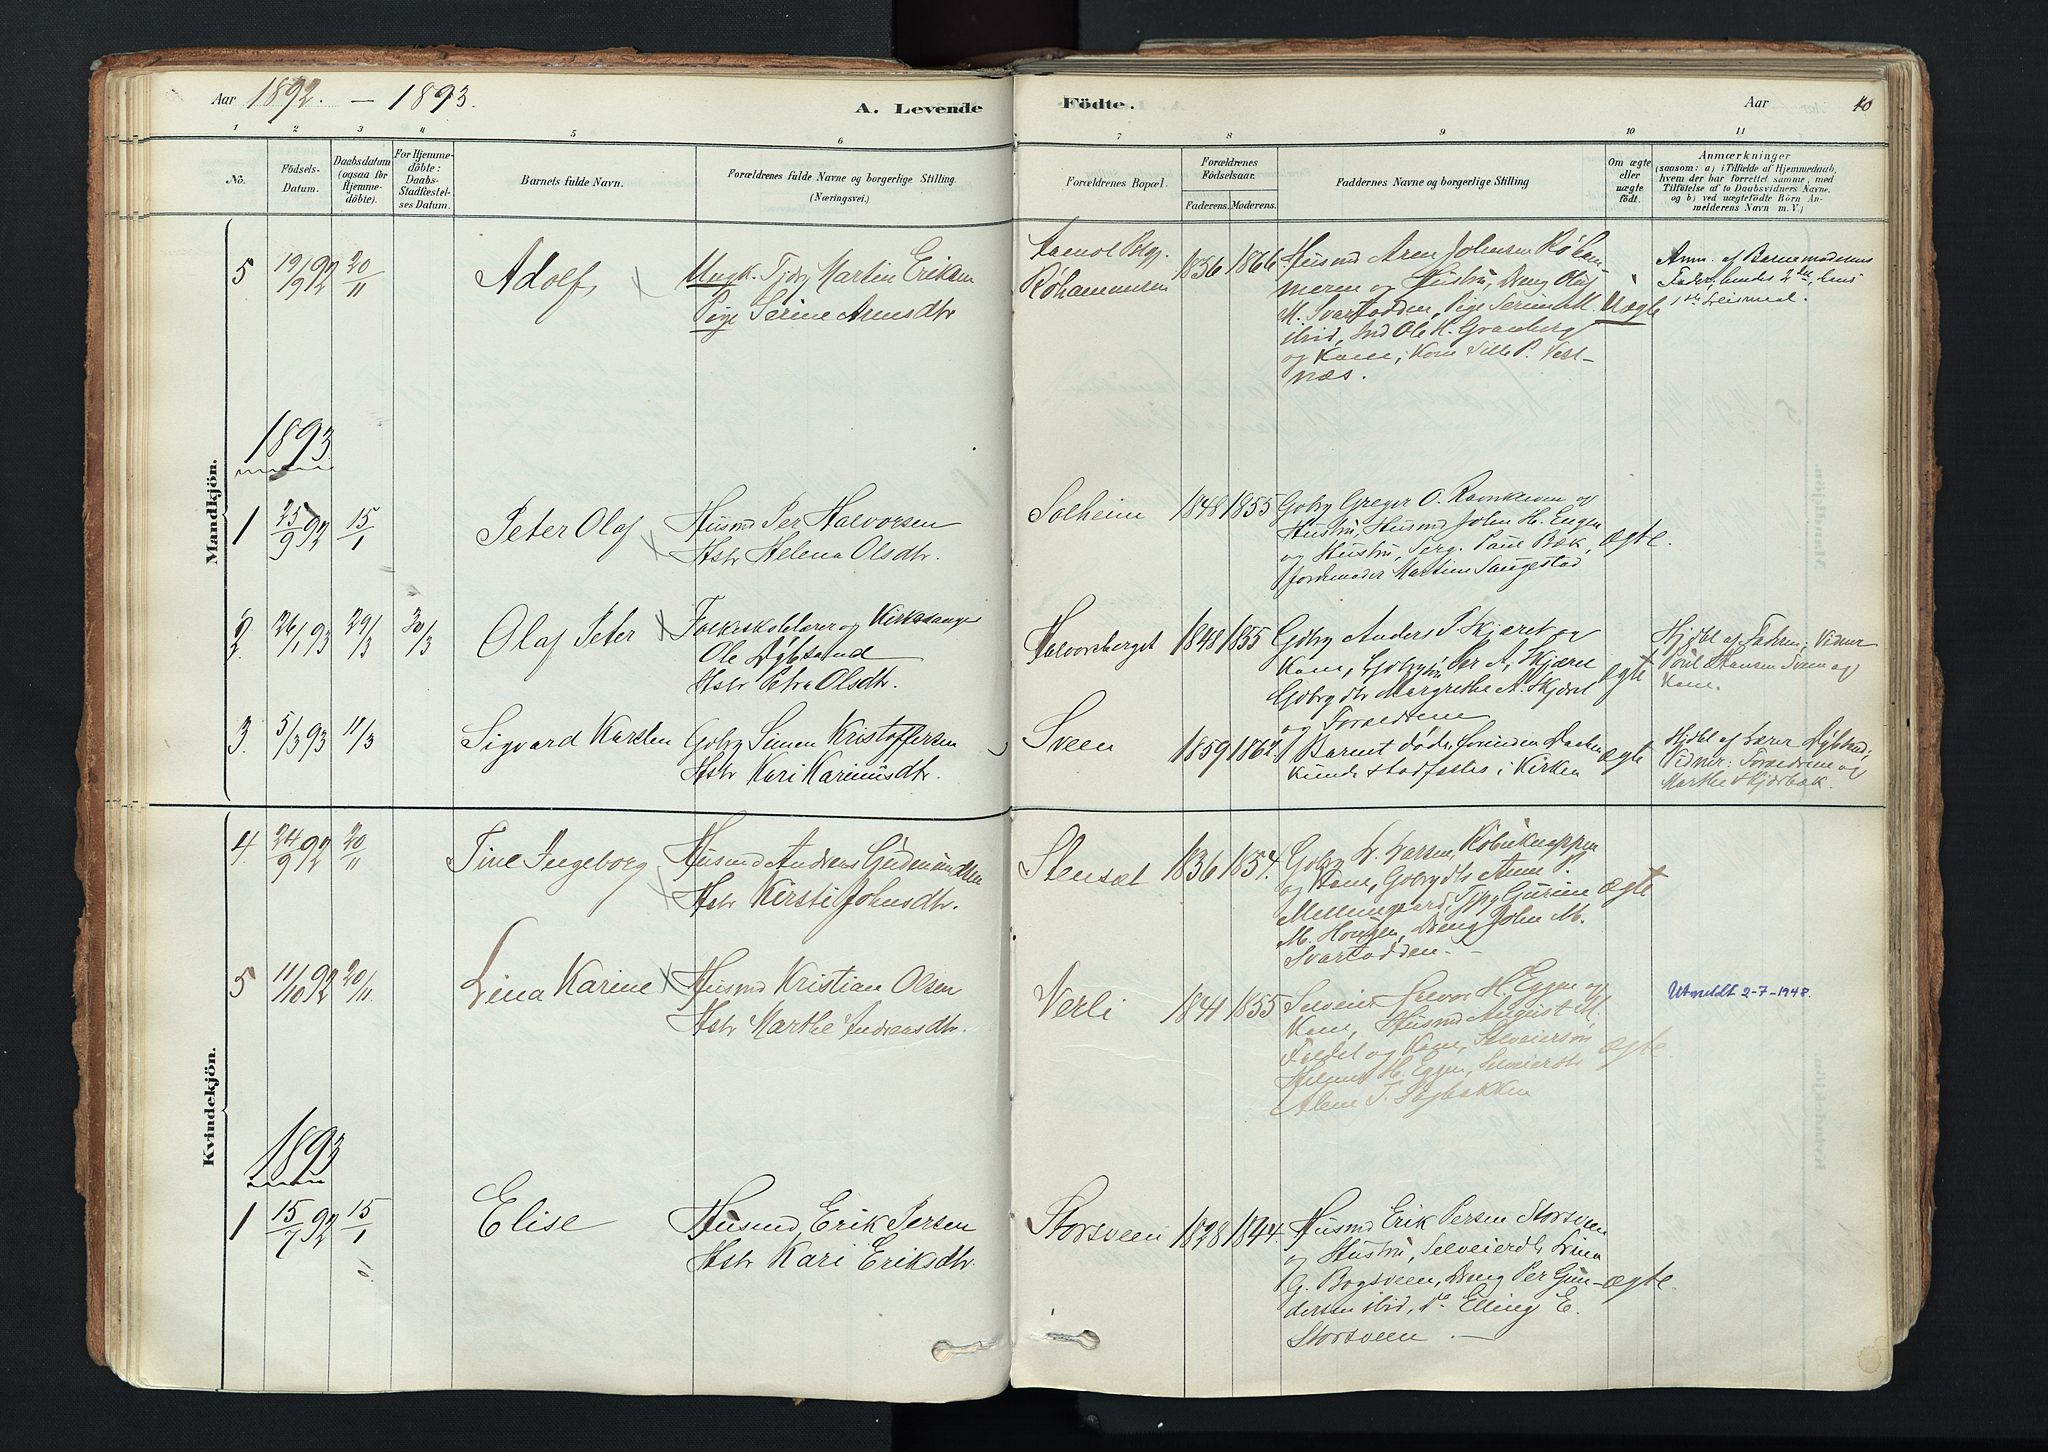 Aar 1892. — 1893.
A. Levende
Födte.
Aar
40
1 2 3 4 5 6 7 8 9 10 11
No.
Födsels-
Datum.
Daabsdatum
(ogsaa for
Hjemme-
döbte).
For Hjemme-
döbte:
Daabs-
Stadfæstel-
ses Datum.
Barnets fulde Navn.
Forældrenes fulde Navne og borgerlige Stilling.
(Næringsvei.)
Forældrenes Bopæl.
Forældrenes
Födselsaar.
Faderens. Moderens.
Faddernes Navne og borgerlige Stilling
Om ægte
eller
uægte
födt.
Anmærkninger
(saasom: a) i Tilfælde af Hjemmedaab,
hvem der har forrettet samme, med
Tilföielse af to Daabsvidners Navne,
og b) ved uægtefödte Börn An-
melderens Navn m. V.)
Mandkjön.
5 19/9 92 20/11 Adolf
Ungk. Tjdr Martin Eriksen
Pige Serine Arnesdtr
Røhammeren
1856 1866
Husmd Aren Johansen Røham-
meren og Hustru, Dreng Olaf
M. Svartodden, Pige Serine M.
ibid, Ind Ole H. Granberg
og Kone, Kone Sille P. Vest-
næs.
Uægte
Anm. af Barnemoderens
Fader, hendes 2det, hans
1ste Leiermaal.
1893
1 25/9 92 15/1 Peter Olaf
Husmd Per Halvorsen
Hstr Helena Olsdtr.
Solheim 1848 1855
Gbbr Greger O. Ravnkleven og
Hustru, Husmd John H. Engen
og Hustru, Serg. Paul Bæk,
Jordemoder Martine Saugestad
ægte.
2. 26/1 93 29/1 30/3 Olaf Peter
Folkeskolelærer og Kirkesanger
Ole Dybsand
Hstr Petra Olsdtr.
Halvorsberget 1848 1855
Gbbr Anders P. Skjæret og
Kone, Gbbrsøn Per A. Skjæret
Gbbrdtr Margrethe A. Skjæret
og Forældrene
ægte
Hjdbt af Faderen, Vidner
Poul Hansen Sveen og
Kone.
3. 5/3 93 11/3 Sigvard Karsten
Gbbr Simen Kristoffersen
Hstr Kari Karinusdtr.
Sveen 1859 1862
Barnet døde, forinden Daaben
kunde stadfæstes i Kirken
ægte
Hjdbt af Lærer Dybsand;
Vidner: Forældrene og
Marthe Skjærbæk.
Kvindekjön.
4. 24/9 92 20/11 Tine Ingeborg
Husmd Anders Gudmundsen
Hstr Kirsti Johnsdtr.
Stensæt 1836 1854.
Gbbr L. Larsen, Kobberknappen
og Kone, Gbbrdtr Anne P.
Mellemgaard, Tjpg Gurine
M. Hougen, Dreng John M.
Svartodden. —
ægte
5 11/10 92 20/11. Lina Karine
Husmd Kristian Olsen
Hstr Marthe Andersdtr.
Verli 1841 1855
Selveier Halvor H. Eggen og
Kone, Husmd August M.
Foldet og Kone, Selveiersøn
Helmer H. Eggen, Selveierdtr
Alene T. Hagbakken
ægte
Utmeldt 2-7-1948.
1893
1 15/7 92 15/1 Elise
Husmd Erik Persen
Hstr Kari Eriksdtr.
Storsveen 1828 1844.
Husmd Erik Persen Storsveen
og Hustru, Selveierdtr Lina
G. Bogsveen, Dreng Per Gun-
dersen ibid, do Elling E.
Storsveen —
ægte.